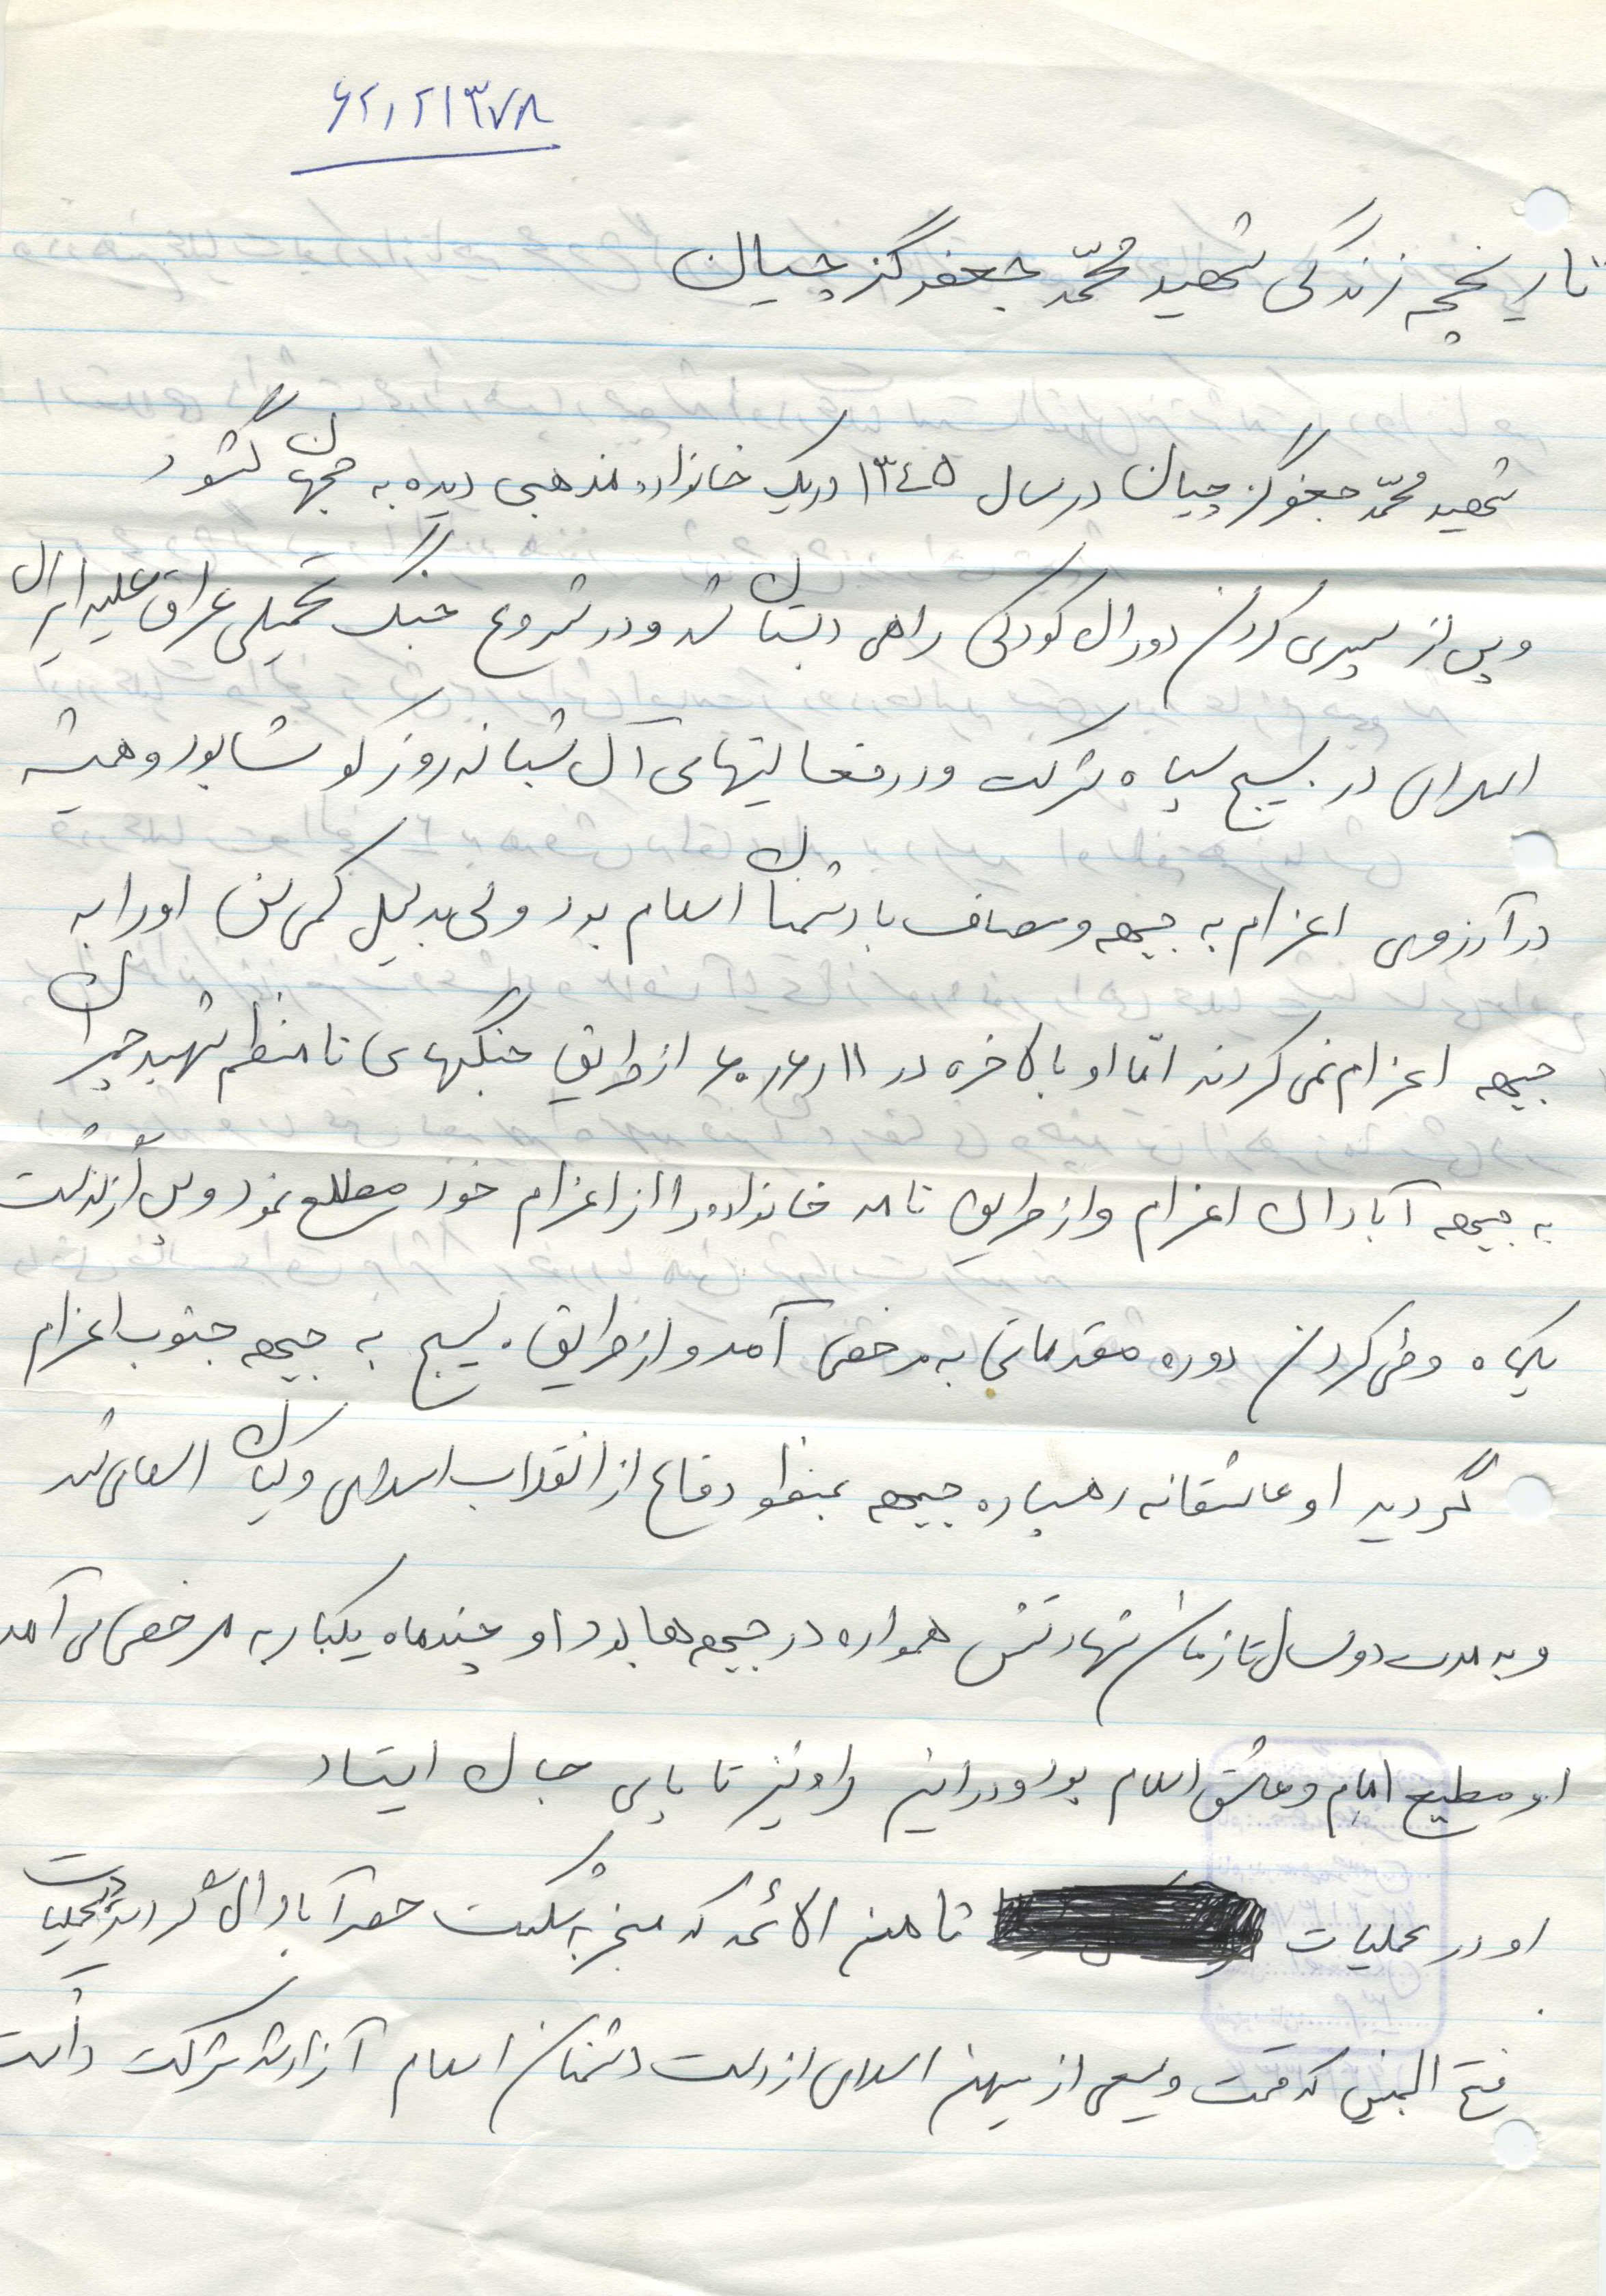 ۶۲۱۲۱۳۷۸
تاریخچه زندگی شهید محمّد جعفر گزچیان
شهید محمّد جعفر گزچیان در سال ۱۳۴۵ در یک خانواده مذهبی دیده به جهان گشود
و پس از سپری کردن دوران کودکی راهی دبستان شد و در شروع جنگ تحمیلی عراق علیه ایران
اسلامی در بسیج سپاه شرکت و در فعالیتهای آن شبانه روز کوشا بود و همیشه
در آرزوی اعزام به جبهه و مصاف با دشمنان اسلام بود ولی بدلیل کمی سن او را به
جبهه اعزام نمی کردند امّا او بالاخره در ۶۰٫۶٫۱۱ از طریق جنگهای نامنظم شهید چمران
به جبهه آبادان اعزام و از طریق نامه خانواده را از اعزام خود مطلع نمود و پس از گذشت
یکماه و طی کردن دوره مقدماتی به مرخصی آمد و از طریق بسیج به جبهه جنوب اعزام
گردید او عاشقانه رهسپار جبهه بمنظور دفاع از انقلاب اسلامی و کیان اسلامی شد
و به مدت دو سال تا زمان شهادتش همواره در جبهه ها بود و او چند ماه یکبار به مرخصی می آمد
او مطیع امام و عاشق اسلام بود و در این راه نیز تا پای جان ایستاد
او در عملیات ثامن الائمه که منجر به شکست حصر آبادان گردید و در عملیات
فتح المبین که قسمت وسیعی از میهن اسلامی از دست دشمنان اسلام آزاد شد شرکت داشت